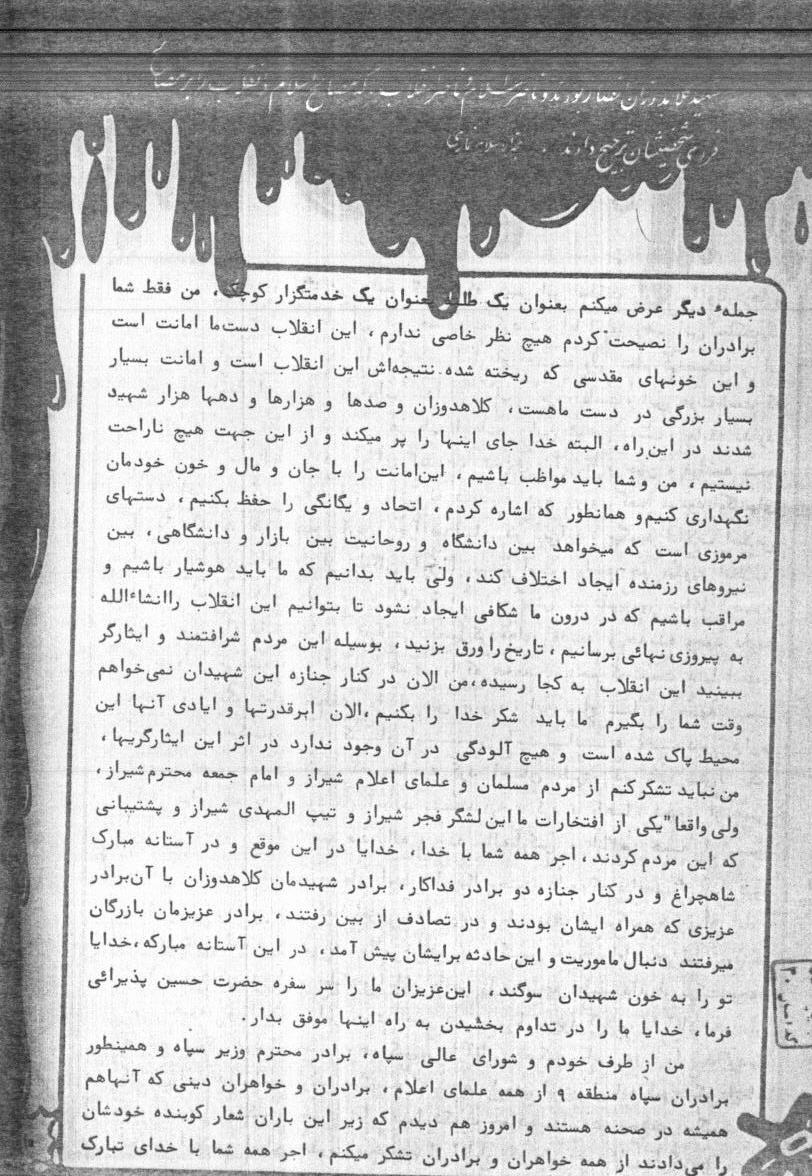 شهید کلاهدوزان انصار بودند و ناصر اسلام و ناصر انقلاب که مصالح اسلام و انقلاب را بر مصالح
فردی و شخصیشان ترجیح دادند .
جملهٔ دیگر عرض میکنم بعنوان یک بعنوان یک خدمتگزار کوچک ، من فقط شما
برادران را نصیحت کردم هیچ نظر خاصی ندارم ، این انقلاب دست‌ما امانت است
و این خونهای مقدسی که ریخته شده نتیجه‌اش این انقلاب است و امانت بسیار
بسیار بزرگی در دست ماهست ، کلاهدوزان و صدها و هزارها و دهها هزار شهید
شدند در این‌راه ، البته خدا جای اینها را پر میکند و از این جهت هیچ ناراحت
نیستیم ، من و شما باید مواظب باشیم ، این‌امانت را با جان و مال و خون خودمان
نگهداری کنیم‌و همانطور که اشاره کردم ، اتحاد و یگانگی را حفظ بکنیم ، دستهای
مرموزی است که میخواهد بین دانشگاه و روحانیت بین بازار و دانشگاهی ، بین
نیروهای رزمنده ایجاد اختلاف کند ، ولی باید بدانیم که ما باید هوشیار باشیم و
مراقب باشیم که در درون ما شکافی ایجاد نشود تا بتوانیم این انقلاب راانشاءالله
به پیروزی نهائی برسانیم ، تاریخ را ورق بزنید ، بوسیله این مردم شرافتمند و ایثارگر
ببینید این انقلاب به کجا رسیده ،من الان در کنار جنازه این شهیدان نمی‌خواهم
وقت شما را بگیرم ما باید شکر خدا را بکنیم ،الان ابرقدرتها و ایادی آنها این
محیط پاک شده است و هیچ آلودگی در آن وجود ندارد در اثر این ایثارگریها ،
من نباید تشکرکنم از مردم مسلمان و علمای اعلام شیراز و امام جمعه محترم شیراز ،
ولی واقعا" یکی از افتخارات ما این لشگر فجر شیراز و تیپ المهدی شیراز و پشتیبانی
که این مردم کردند ، اجر همه شما با خدا ، خدایا در این موقع و در آستانه مبارک
شاهچراغ و در کنار جنازه دو برادر فداکار ، برادر شهیدمان کلاهدوزان با آن‌برادر
عزیزی که همراه ایشان بودند و در تصادف از بین رفتند ، برادر عزیزمان بازرگان
میرفتند دنبال ماموریت و این حادثه برایشان پیش آمد ، در این آستانه مبارکه ،خدایا
تو را به خون شهیدان سوگند ، این‌عزیزان ما را سر سفره حضرت حسین پذیرائی
فرما ، خدایا ما را در تداوم بخشیدن به راه اینها موفق بدار .
من از طرف خودم و شورای عالی سپاه ، برادر محترم وزیر سپاه و همینطور
برادران سپاه منطقه ۹ از همه علمای اعلام ، برادران و خواهران دینی که آنهاهم
همیشه در صحنه هستند و امروز هم دیدم که زیر این باران شعار کوبنده خودشان
را می‌دادند از همه خواهران و برادران تشکر میکنم ، اجر همه شما با خدای تبارک